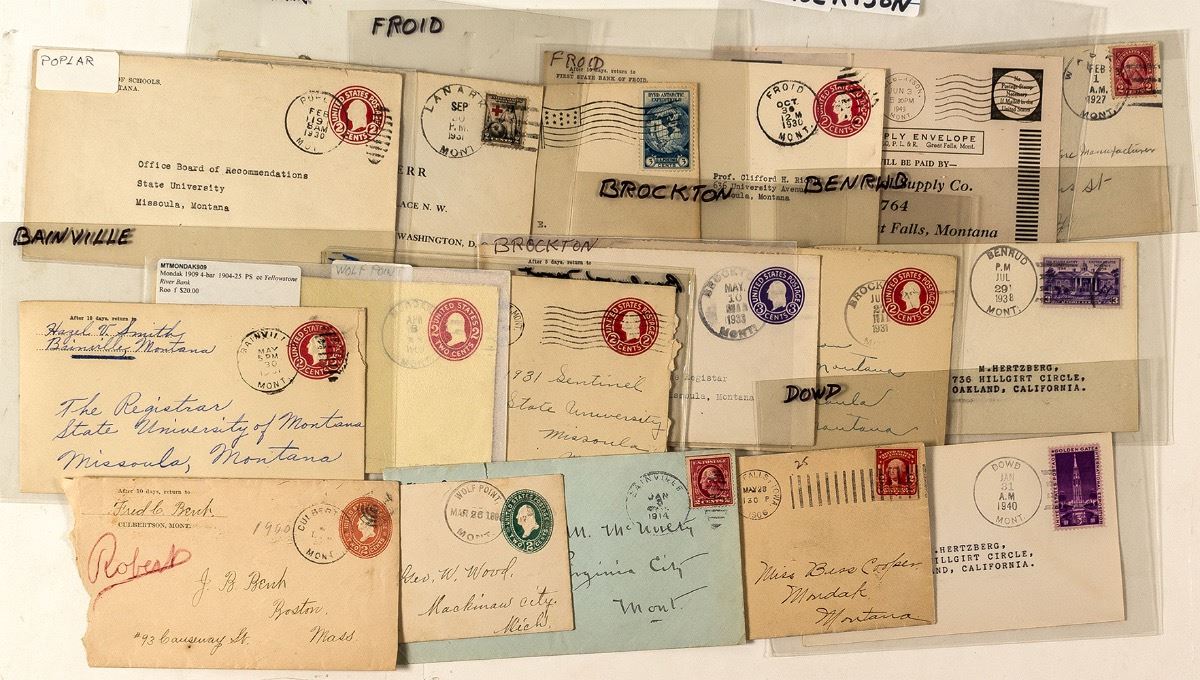 FROID
POPLAR
OF SCHOOLS.
TANA.
FEB
19
8AM
1938
UNITED STATES POSTAGE
2 CENTS 2
Office Board of Recommendations
State University
Missoula, Montana
LANARK
SEP
P.M.
1931
MONT.
ERR
LACE N. W.
WASHINGTON, D.
FROID
After 10 days, return to
FIRST STATE BANK OF FROID.
BYRD ANTARCTIC
EXPEDITION II
3 CENTS 3
E.
FROID
OCT
12 M
1930
MONT.
Prof. Clifford H.
636 University Avenue
Missoula, Montana
BROCKTON
BENRUD
JUN 3
1949
MONT.
No
Postage Stamp
Necessary
If Mailed in the
United States
PLY ENVELOPE
Great Falls, Mont.
ILL BE PAID BY—
Supply Co.
764
t Falls, Montana
FEB
1
A.M.
1927
MONT.
Manufacturers
St
BAINVILLE
MTMONDAK909
Mondak 1909 4-bar 1904-25 PS cc Yellowstone
River Bank
Roo f $20.00
WOLF POINT
BROCKTON
After 5 days, return to
After 10 days, return to
Hazel V. Smith
Bainville Montana
BAINVILLE
MAY
5PM
30
MONT.
The Registrar
State University of Montana
Missoula, Montana
UNITED STATES POSTAGE
TWO CENTS
1931 Sentinel
State University
Missoula
BROCKTON
MAY
10
1933
MONT.
Registrar
Missoula, Montana
BROCKTON
1931
MONT.
Montana
Montana
BENRUD
P.M
JUL
29
1938
MONT.
M.HERTZBERG,
736 HILLGIRT CIRCLE,
OAKLAND, CALIFORNIA.
DOWD
After 10 days, return to
Fred C. Benh
CULBERTSON, MONT.
1900
CULBERT
MONT
Robert
J. B. Benh
Boston.
#93 Causeway St. Mass
WOLF POINT
MAR 26
MONT.
Geo, W. Wood,
Mackinaw City,
Mich.
BAINVILLE
JAN
1914
MONT.
2 CENTS 2
M. McNulty
Virginia City
Mont.
FALLS, IOWA
MAY 28
1 30 P
1906
25
Miss Bess Cooper
Mondak
Montana
DOWD
JAN
31
A.M
1940
MONT.
GOLDEN GATE
.HERTZBERG,
HILLGIRT CIRCLE,
ND, CALIFORNIA.